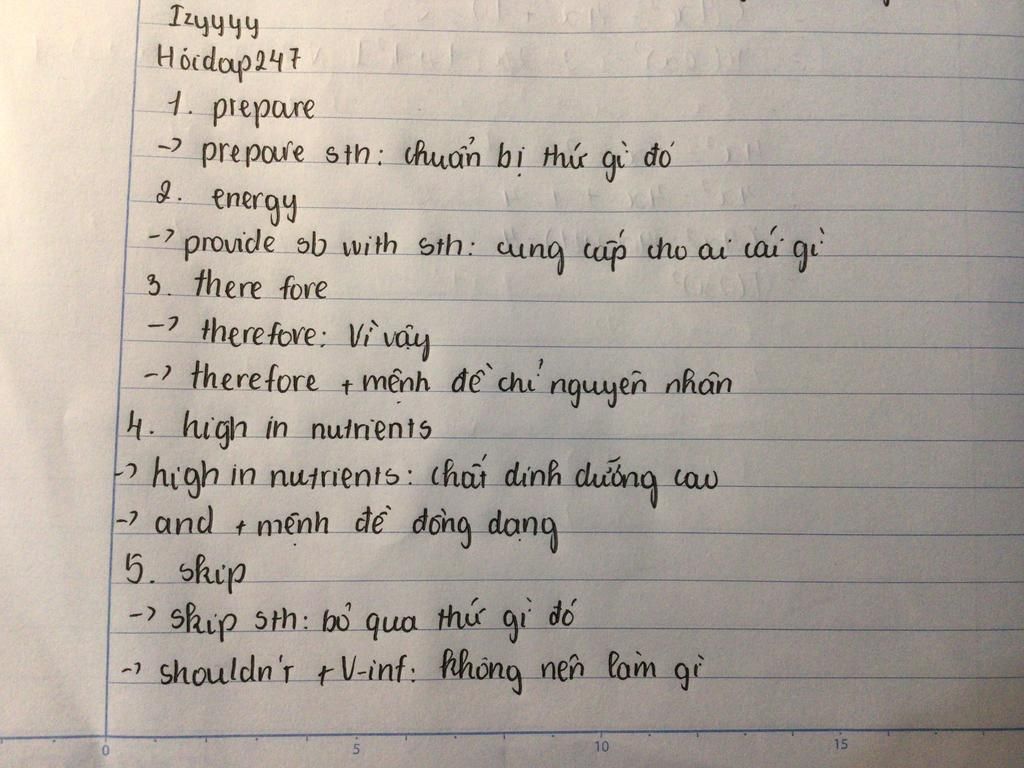 Izyyyy
Hóidap247
1. prepare
-> prepare sth: chuẩn bị thứ gì đó
2. energy
-> provide sb with sth: cung cấp cho ai cái gì
3. there fore
-> therefore: Vì vậy
-> therefore + mệnh đề chỉ nguyên nhân
4. high in nutrients
-> high in nutrients: chất dinh dưỡng cao
-> and + mệnh đề đồng dạng
5. skip
-> skip sth: bỏ qua thứ gì đó
-> shouldn't + V-inf: không nên làm gì
0 5 10 15